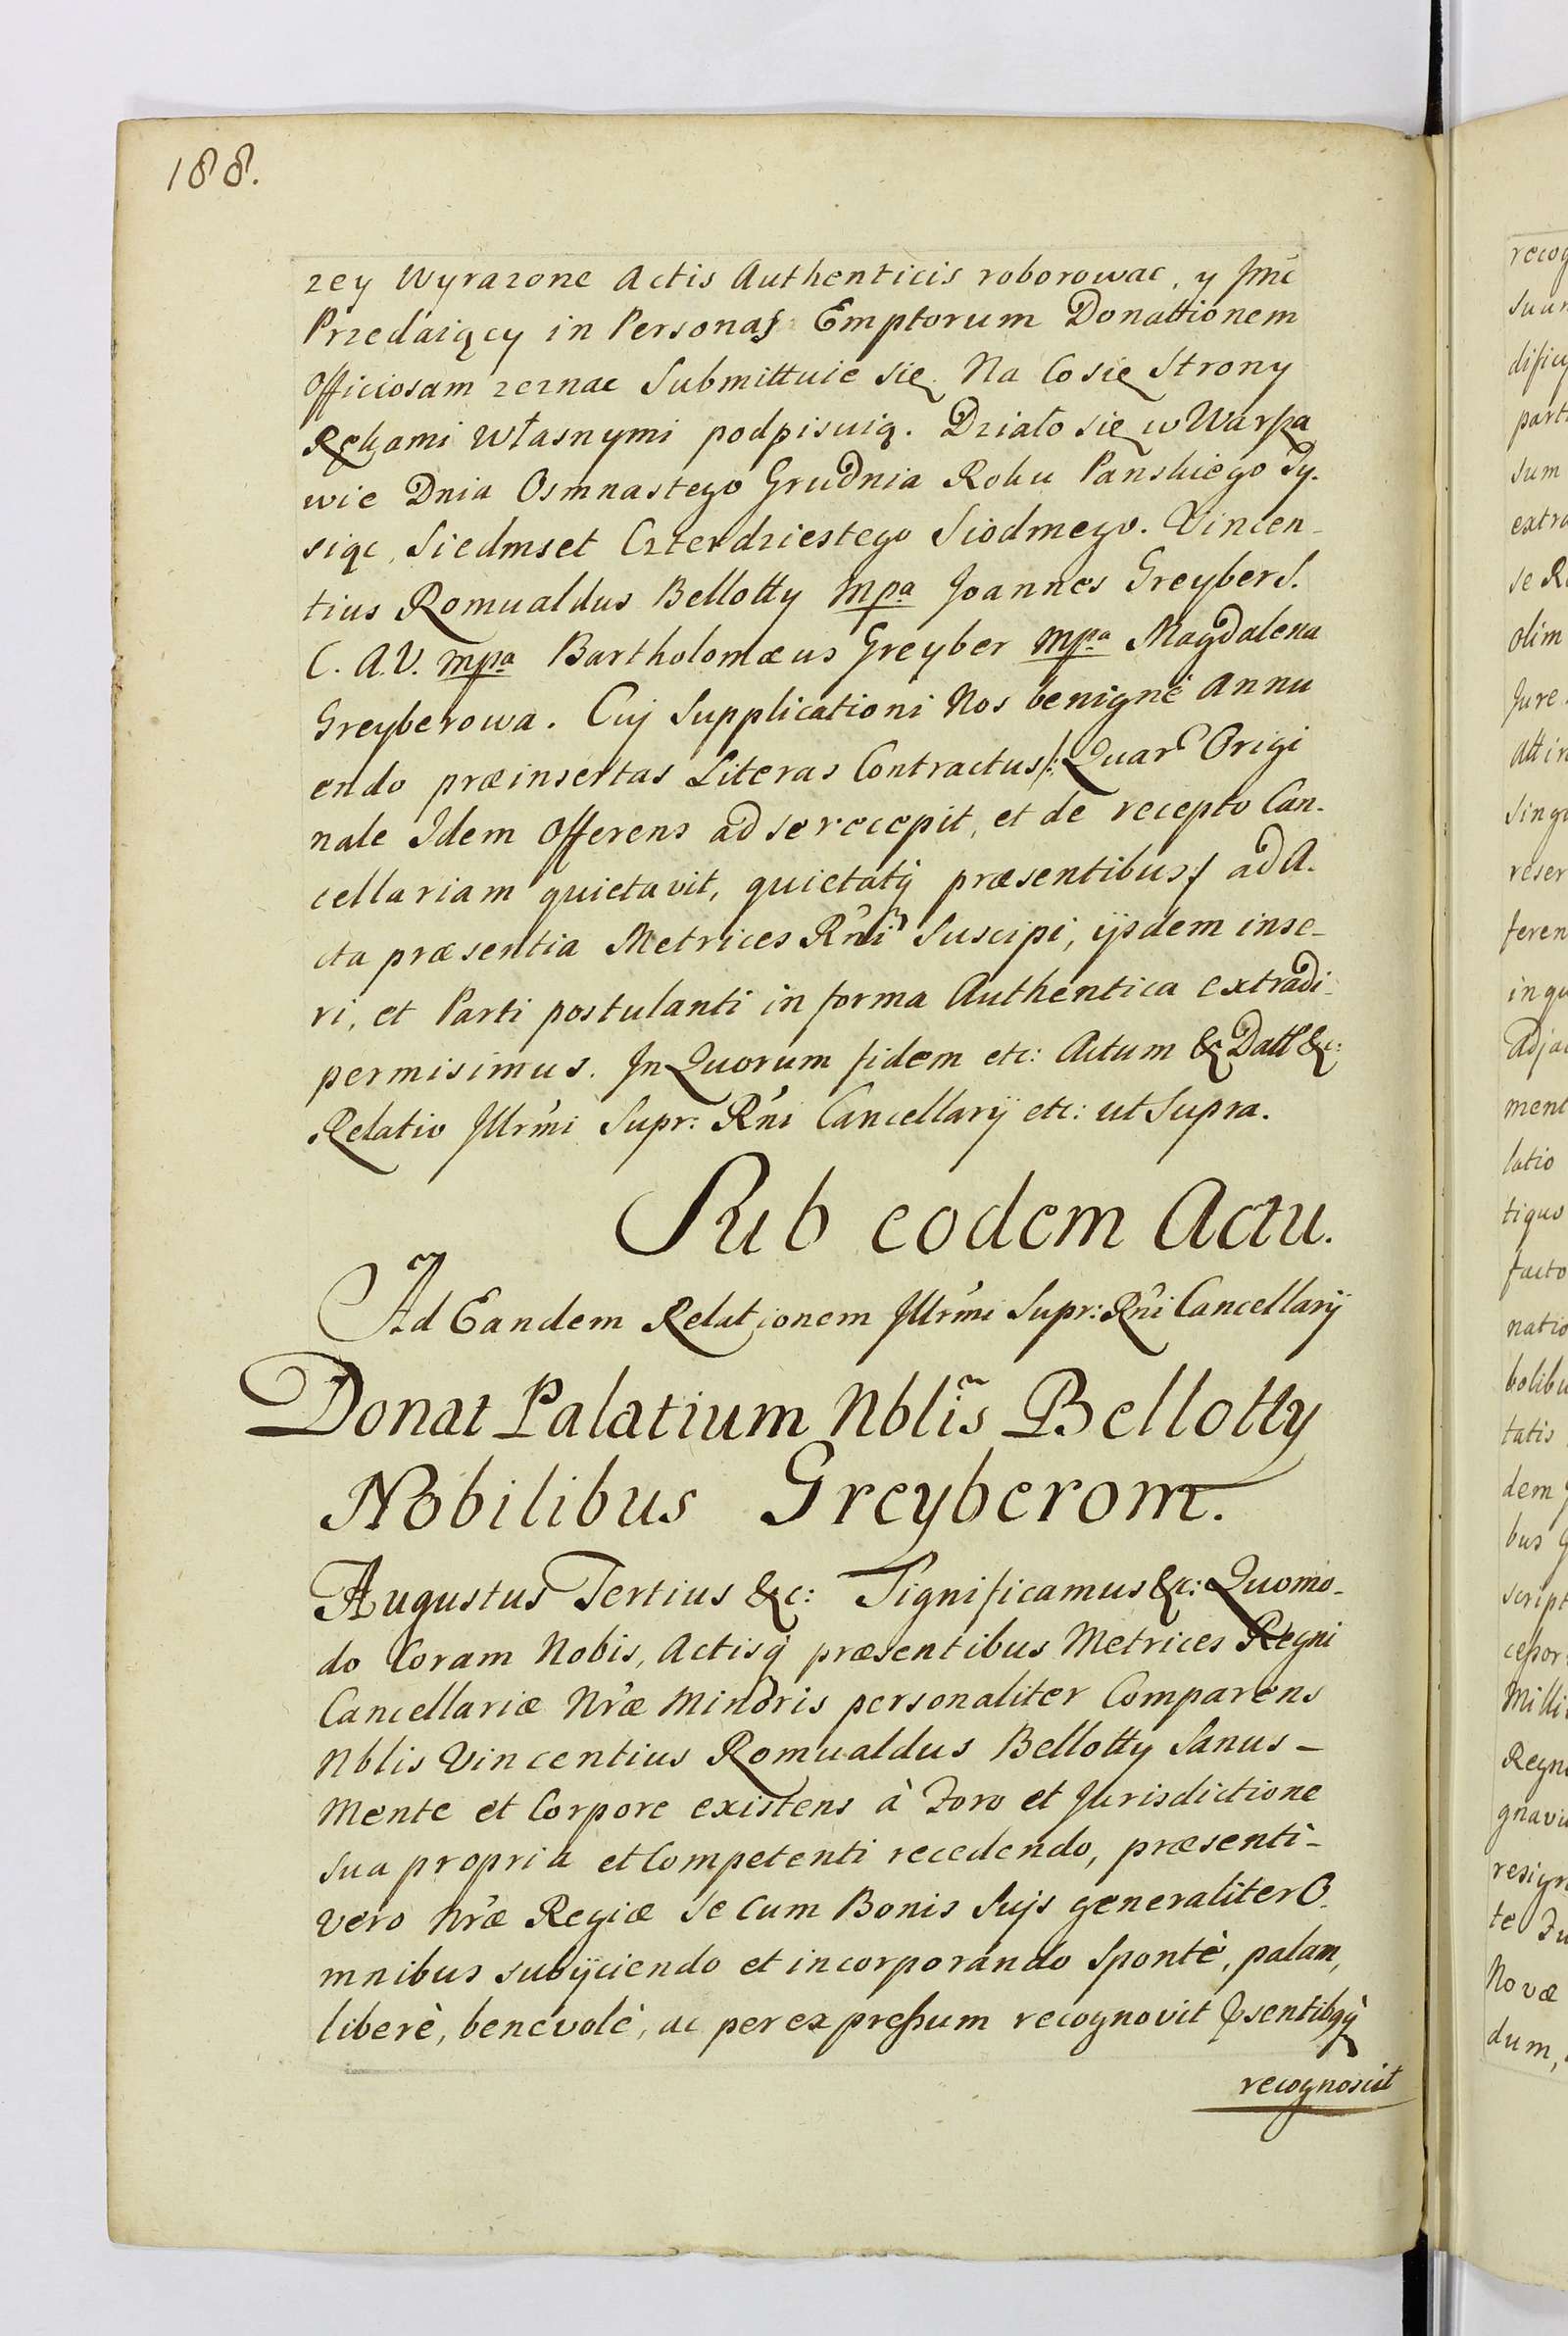 188.
zey Wyrazone Actis Authenticis roborowac, y Jmć
Przedaiący in Personas Emptorum Donattionem
Officiosam zeznac Submittuie się. Na Co się Strony
Rękami własnymi podpisuią. Działo się w Warsza
wie Dnia Osmnastego Grudnia Roku Panskiego Ty-
siąc, Siedmset Czterdziestego Siodmego. Vincen-
tius Romualdus Bellotty mpa Joannes Greyber S.
C. A.V. mpa Bartholomæus Greyber mpa Magdalena
Greyberowa. Cuj Supplicationi Nos benignè Annu
endo præinsertas Literas Contractus /: Quar Origi
nale Idem Offerens ad se recepit, et de recepto Can-
cellariam quietavit, quietatq́ præsentibus / ad A-
cta præsentia Metrices Rńi Suscipi, ijsdem inse-
ri, et Parti postulanti in forma Authentica extradi-
permisimus. In Quorum fidem etc: Actum & Datt &c:
Relatio Jllrḿi Supr: Rńi Cancellarij etc: ut Supra.
Sub eodem Actu.
Ad Eandem Relationem Jllrḿi Supr: Rńi Cancellarij
Donat Palatium Nblis̃ Bellotty
Nobilibus Greyberom.
Augustus Tertius &c: Significamus &c: Quomo-
do Coram Nobis, Actisq́ præsentibus Metrices Regni
Cancellariæ Nŕæ Minoris personaliter Comparens
Nblis Vincentius Romualdus Bellotty Sanus-
Mente et Corpore existens à Foro et Jurisdictione
sua propria et Competenti recedendo, præsenti-
vero Nŕæ Regiæ se Cum Bonis Sujs generaliter O-
mnibus subijciendo et incorporando Spontè, palam,
liberè, benevolè, ac per expressum recognovit Psentibq́
recognoscit
recog
suur
part
sum
extra
se R
olim
Jure.
Att in
singu
reser
feren
in qu
Adja
ment
latio
tiquo
facto
natio
bolibu
tatis
dem
bus
script
cessor
Milli
Regni
gnavi
resign
te Fu
Novæ
dum,